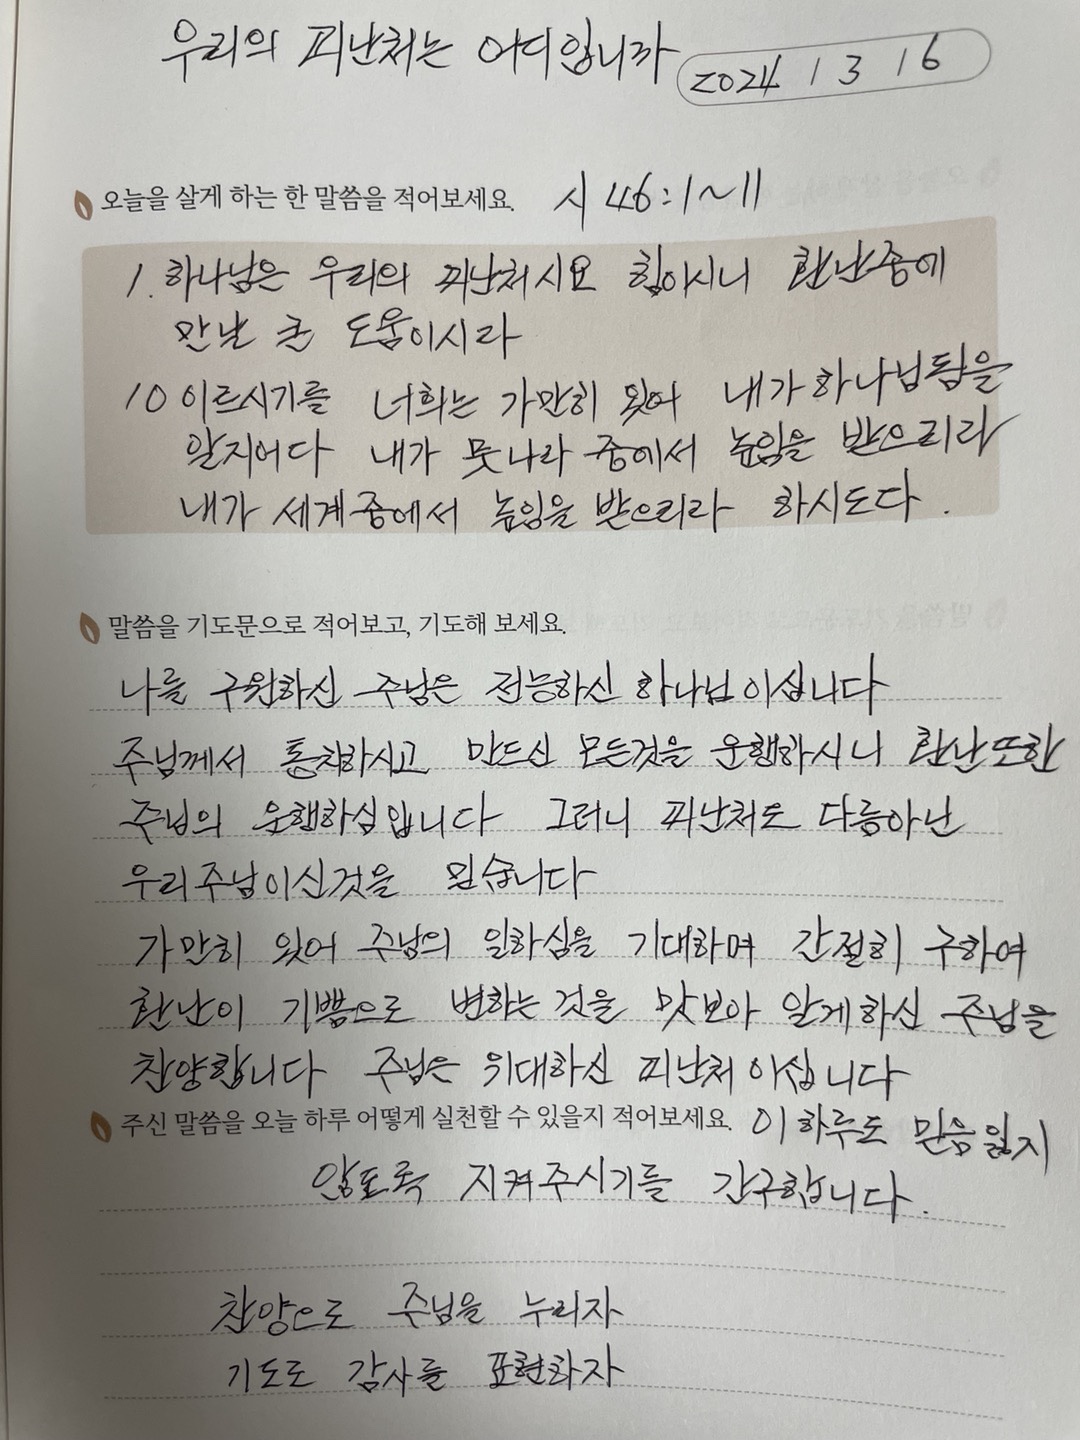 우리의 피난처는 어디입니까
2024 / 3 / 6
오늘을 살게 하는 한 말씀을 적어보세요. 시 46:1~11
1. 하나님은 우리의 피난처시요 힘이시니 환난중에
만날 큰 도움이시라
10 이르시기를 너희는 가만히 있어 내가 하나님됨을
알지어다 내가 뭇나라 중에서 높임을 받으리라
내가 세계중에서 높임을 받으리라 하시도다.
말씀을 기도문으로 적어보고, 기도해 보세요.
나를 구원하신 주님은 전능하신 하나님이십니다
주님께서 통치하시고 만드신 모든것을 운행하시니 환난또한
주님의 운행하심입니다 그러니 피난처도 다름아닌
우리주님이신것을 믿습니다
가만히 있어 주님의 일하심을 기대하며 간절히 구하여
환난이 기쁨으로 변하는 것을 맛보아 알게하신 주님을
찬양합니다 주님은 위대하신 피난처 이십니다
주신 말씀을 오늘 하루 어떻게 실천할 수 있을지 적어보세요. 이 하루도 믿음잃지
않도록 지켜주시기를 간구합니다.
찬양으로 주님을 누리자
기도로 감사를 표현하자